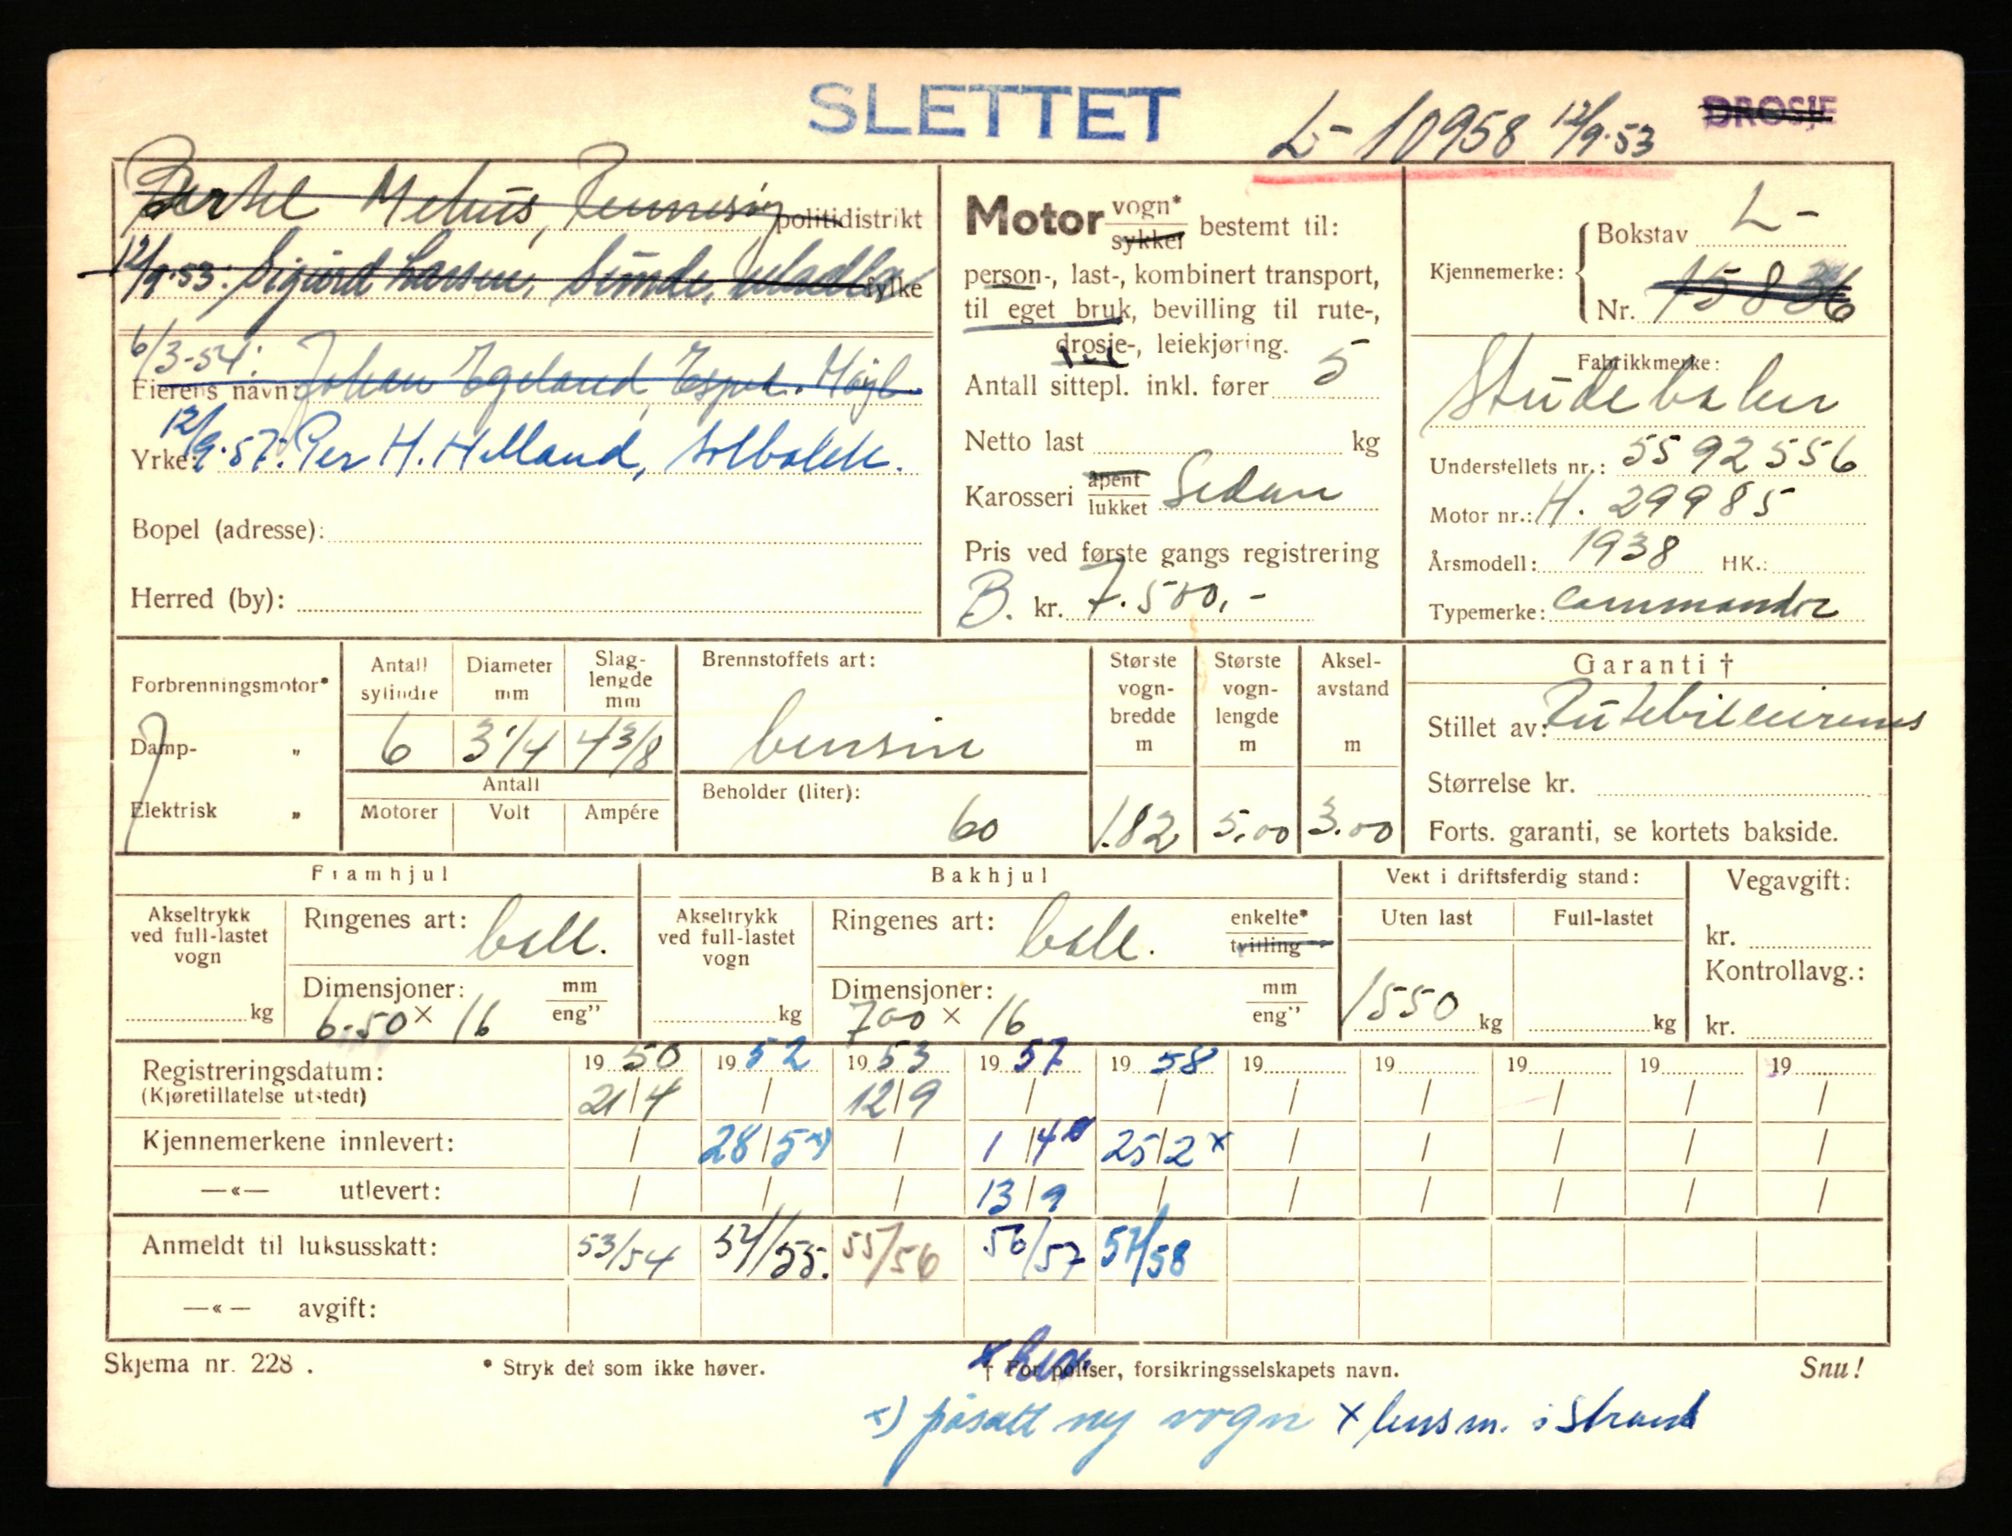 SLETTET
L-10958 12/9-53
DROSJE
Bertel Mehus, Rennesøy politidistrikt
12/9-53: Sigurd Larsen, Sunde, Madla fylke
6/3-54: Eierens navn: Johan Egeland, Espel. Høgl.
Yrke: 12/9-57: Per H. Helland, Solbakk.
Bopel (adresse):
Herred (by):
Motor vogn* sykkel bestemt til:
person-, last-, kombinert transport,
til eget bruk, bevilling til rute-,
drosje-, leiekjøring.
Antall sittepl. inkl. fører 5
Netto last kg
Karosseri åpent lukket Sedan
Pris ved første gangs registrering
B. kr. 7.500,-
Kjennemerke: Bokstav L-
Nr. 15836
Fabrikkmerke:
Studebaker
Understellets nr.: 5592556
Motor nr.: H. 29985
Årsmodell: 1938 HK.:
Typemerke: Commander
Forbrenningsmotor*
Damp- "
Elektrisk "
Antall sylindre 6
Diameter mm 3 1/4
Slag-lengde mm 4 3/8
Antall
Motorer Volt Ampére
Brennstoffets art:
bensin
Beholder (liter):
60
Største vogn-bredde m 1.82
Største vogn-lengde m 5.00
Aksel-avstand m 3.00
Garanti †
Stillet av: Rutebileiernes
Størrelse kr.
Forts. garanti, se kortets bakside.
Framhjul
Akseltrykk ved full-lastet vogn
kg
Ringenes art: ball.
Dimensjoner: mm eng"
6-50 x 16
Bakhjul
Akseltrykk ved full-lastet vogn
kg
Ringenes art: ball. enkelte* tvilling
Dimensjoner: mm eng"
700 x 16
Vekt i driftsferdig stand:
Uten last Full-lastet
1550 kg kg
Vegavgift:
kr.
Kontrollavg.:
kr.
Registreringsdatum: 19 50 19 52 19 53 19 57 19 58 19 19 19 19 19
(Kjøretillatelse utstedt) 21/4 / 12/9 / / / / / / /
Kjennemerkene innlevert: / 28/5 x) / 1/4 x 25/2 x / / / / /
—«— utlevert: / / / 13/9 / / / / / /
Anmeldt til luksusskatt: 53/54 54/55. 55/56 56/57 57/58
—«— avgift:
Skjema nr. 228.
* Stryk det som ikke høver.
† For poliser, forsikringsselskapets navn.
Snu!
x) påsatt ny vogn x lensm. i Strand